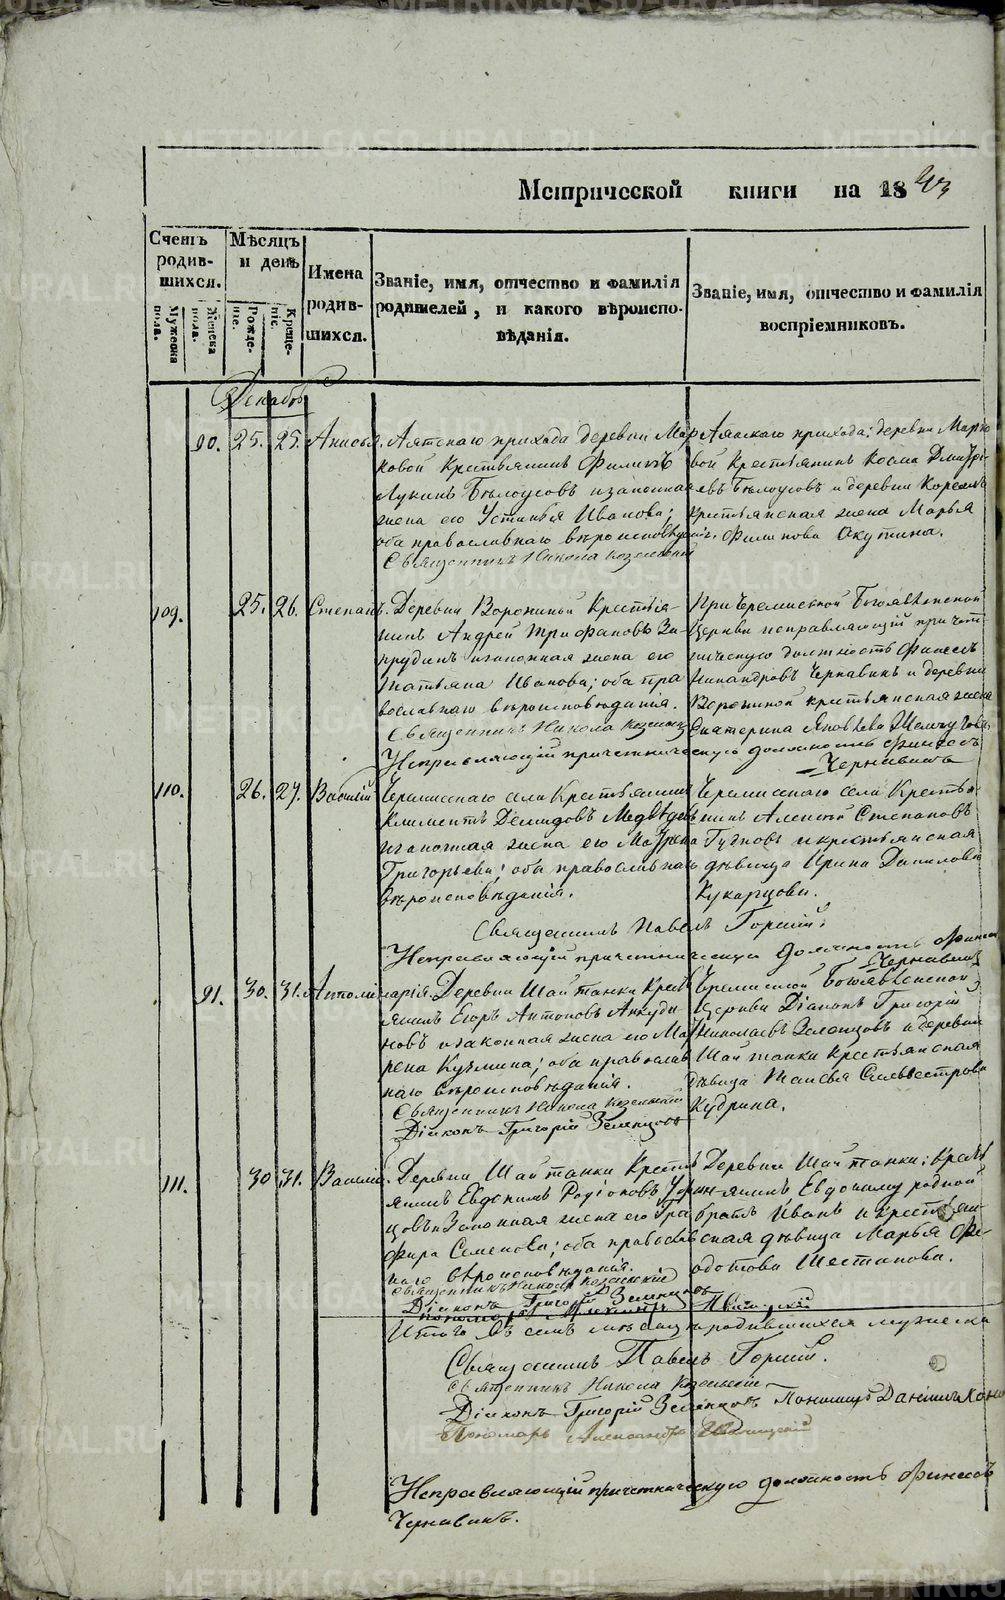 METRIKI.GASO-URAL.RU
Метрической книги на 1843
Счетъ родив-шихся.
Мужеска пола.
Женска пола.
Мѣсяцъ и день
Рожде-ніе.
Креще-ніе.
Имена родив-шихся.
Званіе, имя, отчество и фамилія родителей, и какого вѣроиспо-вѣданія.
Званіе, имя, отчество и фамилія воспріемниковъ.
Декабрь
90. 25. 25. Анисья.
Аятскаго прихода деревни Мар
ковой Крестьянинъ Филипъ
Лукинъ Бѣлоусовъ и законная
жена его Устинья Иванова;
оба православнаго вѣроисповѣданія.
Священникъ Никола Козельскій
Аятскаго прихода: деревни Марко
вой Крестьянинъ Косма Дмитрі-
евъ Бѣлоусовъ и деревни
крестьянская жена Марья
Филипова Окутина.
109. 25. 26. Степанъ.
Деревни Ворониной Крестья-
нинъ Андрей Трифановъ За-
прудинъ и законная жена его
Татьяна Иванова; оба пра
вославнаго вѣроисповѣданія.
Священникъ Никола Козельскій
Исправляющій причетническую должность Финеесъ
Чернавинъ
При Черемисской Богоявленской
Церкви исправляющій причет
ническую должность Финеесъ
Никандровъ Чернавинъ и деревни
Ворониной крестьянская жена
Екатерина Яковлева
110. 26. 27. Василій
Черемисскаго села Крестьянинъ
Климентъ Демидовъ Медвѣдевъ
и законная жена его Матрена
Григорьева; оба православнаго
вѣроисповѣданія.
Черемисскаго села Крестья
нинъ Алексѣй Степановъ
Гудковъ и крестьянская
дѣвица Ирина Данилова
Кукарцова.
Священникъ Павелъ Горный.
Исправляющій причетническую должность Финеесъ
Чернавинъ
91. 30. 31. Аполинарія.
Деревни Шайтанки Крестья
янинъ Егоръ Антоновъ Анкуди
новъ и законная жена его Мат
рена Кузмина; оба православ
наго вѣроисповѣданія.
Священникъ Никола Козельскій
Діаконъ Григорій Зеленцовъ
Черемисской Богоявленской
Церкви Діаконъ Григорій
Николаевъ Зеленцовъ и деревни
Шайтанки крестьянская
дѣвица Таисья Сильвестрова
Кудрина.
111. 30 31. Василій.
Деревни Шайтанки Кресть
янинъ Евдокимъ Родіоновъ
цовъ и Законная жена его Гла
фира Семенова; оба православ
наго вѣроисповѣданія.
Священникъ Никола Козельскій
Діаконъ Григорій Зеленцовъ
Деревни Шайтанки; Кресть
янинъ Евдокиму родной
братъ Иванъ и крестьян-
ская дѣвица Марья Фе-
одотова Шестакова.
Итого въ семъ мѣсяцѣ родившихся мужеска
Священникъ Павелъ Горный.
Священникъ Никола Козельскій
Діаконъ Григорій Зеленцовъ
Пономарь Александръ
Исправляющій причетническую должность Финеесъ
Чернавинъ.